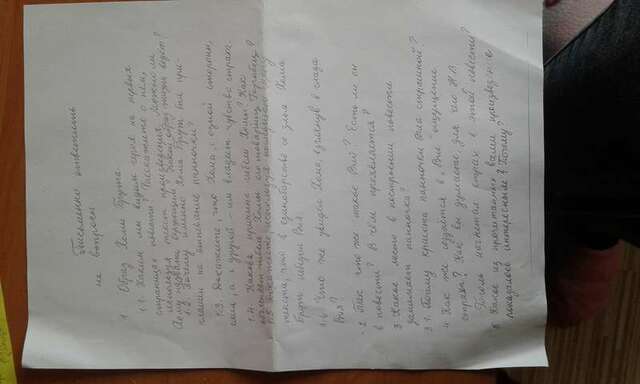 Письменно ответить
на вопросы
1 Образ Хомы Брута
1.1. Каким мы видим героя на первых
страницах повести? Расскажите о нём,
используя текст произведения. Можно ли
Хому назвать верующим? Какой образ жизни ведёт?
1.2. Почему именно Хома Брут был при-
глашён на отпевание панночки?
1.3. Докажите, что Хома, с одной стороны,
а с другой - им владеет чувство страха.
1.4. Какова причина гибели Хомы? Как
объясняет гибель Хомы его товарищ Горобец?
1.5 Докажите, используя последнюю сцену
текста, что в единоборстве со злом Хома
Брут увидел Вия.
1.6 Что же увидел Хома, взглянув в глаза
Вия?
2 Так что же такое Вий? Есть ли он
в повести? В чём проявляется?
3 Какое место в построении повести
занимает панночка?
3.1. Почему красота панночки была страшной?
4 Как же создаётся в "Вие" ощущение
страха? Как вы думаете, для чего Н.В.
Гоголь нагнетал страх в этой повести?
5 Какое из прочитанных вами произведение
показалось интересным? Почему?